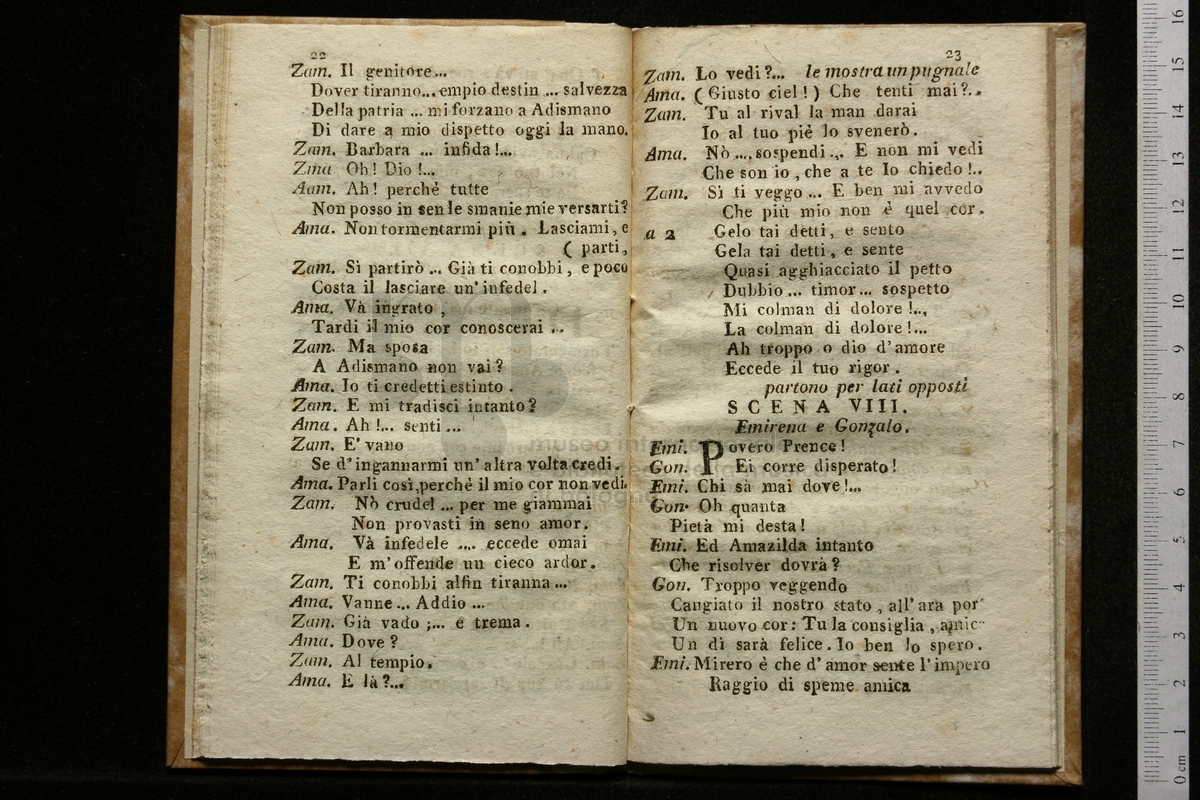 22
Zam. Il genitore...
Dover tiranno... empio destin ... salvezza
Della patria ... mi forzano a Adismano
Di dare a mio dispetto oggi la mano.
Zam. Barbara ... infida!...
Zma Oh! Dio!...
Aam. Ah! perchè tutte
Non posso in sen le smanie mie versarti?
Ama. Non tormentarmi più. Lasciami, e
( parti,
Zam. Sì partirò ... Già ti conobbi, e poco
Costa il lasciare un' infedel.
Ama. Và ingrato,
Tardi il mio cor conoscerai ...
Zam. Ma sposa
A Adismano non vai?
Ama. Io ti credetti estinto.
Zam. E mi tradisci intanto?
Ama. Ah!... senti ...
Zam. E' vano
Se d' ingannarmi un' altra volta credi.
Ama. Parli così, perchè il mio cor non vedi.
Zam. Nò crudel ... per me giammai
Non provasti in seno amor.
Ama. Và infedele .... eccede omai
E m' offende un cieco ardor.
Zam. Ti conobbi alfin tiranna...
Ama. Vanne... Addio ...
Zam. Già vado ;... e trema.
Ama. Dove?
Zam. Al tempio.
Ama. E là?...
23
Zam. Lo vedi?... le mostra un pugnale
Ama. ( Giusto ciel! ) Che tenti mai?..
Zam. Tu al rival la man darai
Io al tuo piè lo svenerò.
Ama. Nò .... sospendi ... E non mi vedi
Che son io, che a te lo chiedo!..
Zam. Sì ti veggo ... E ben mi avvedo
Che più mio non è quel cor.
a 2 Gelo tai detti, e sento
Gela tai detti, e sente
Quasi agghiacciato il petto
Dubbio... timor... sospetto
Mi colman di dolore!..,
La colman di dolore!...
Ah troppo o dio d' amore
Eccede il tuo rigor.
partono per lati opposti
SCENA VIII.
Emirena e Gonzalo.
Emi. Povero Prence!
Gon. Ei corre disperato!
Emi. Chi sà mai dove!...
Gon. Oh quanta
Pietà mi desta!
Emi. Ed Amazilda intanto
Che risolver dovrà?
Gon. Troppo veggendo
Cangiato il nostro stato, all' ara por
Un nuovo cor: Tu la consiglia, amic
Un dì sarà felice. Io ben lo spero.
Emi. Mirero è che d' amor sente l' impero
Raggio di speme amica